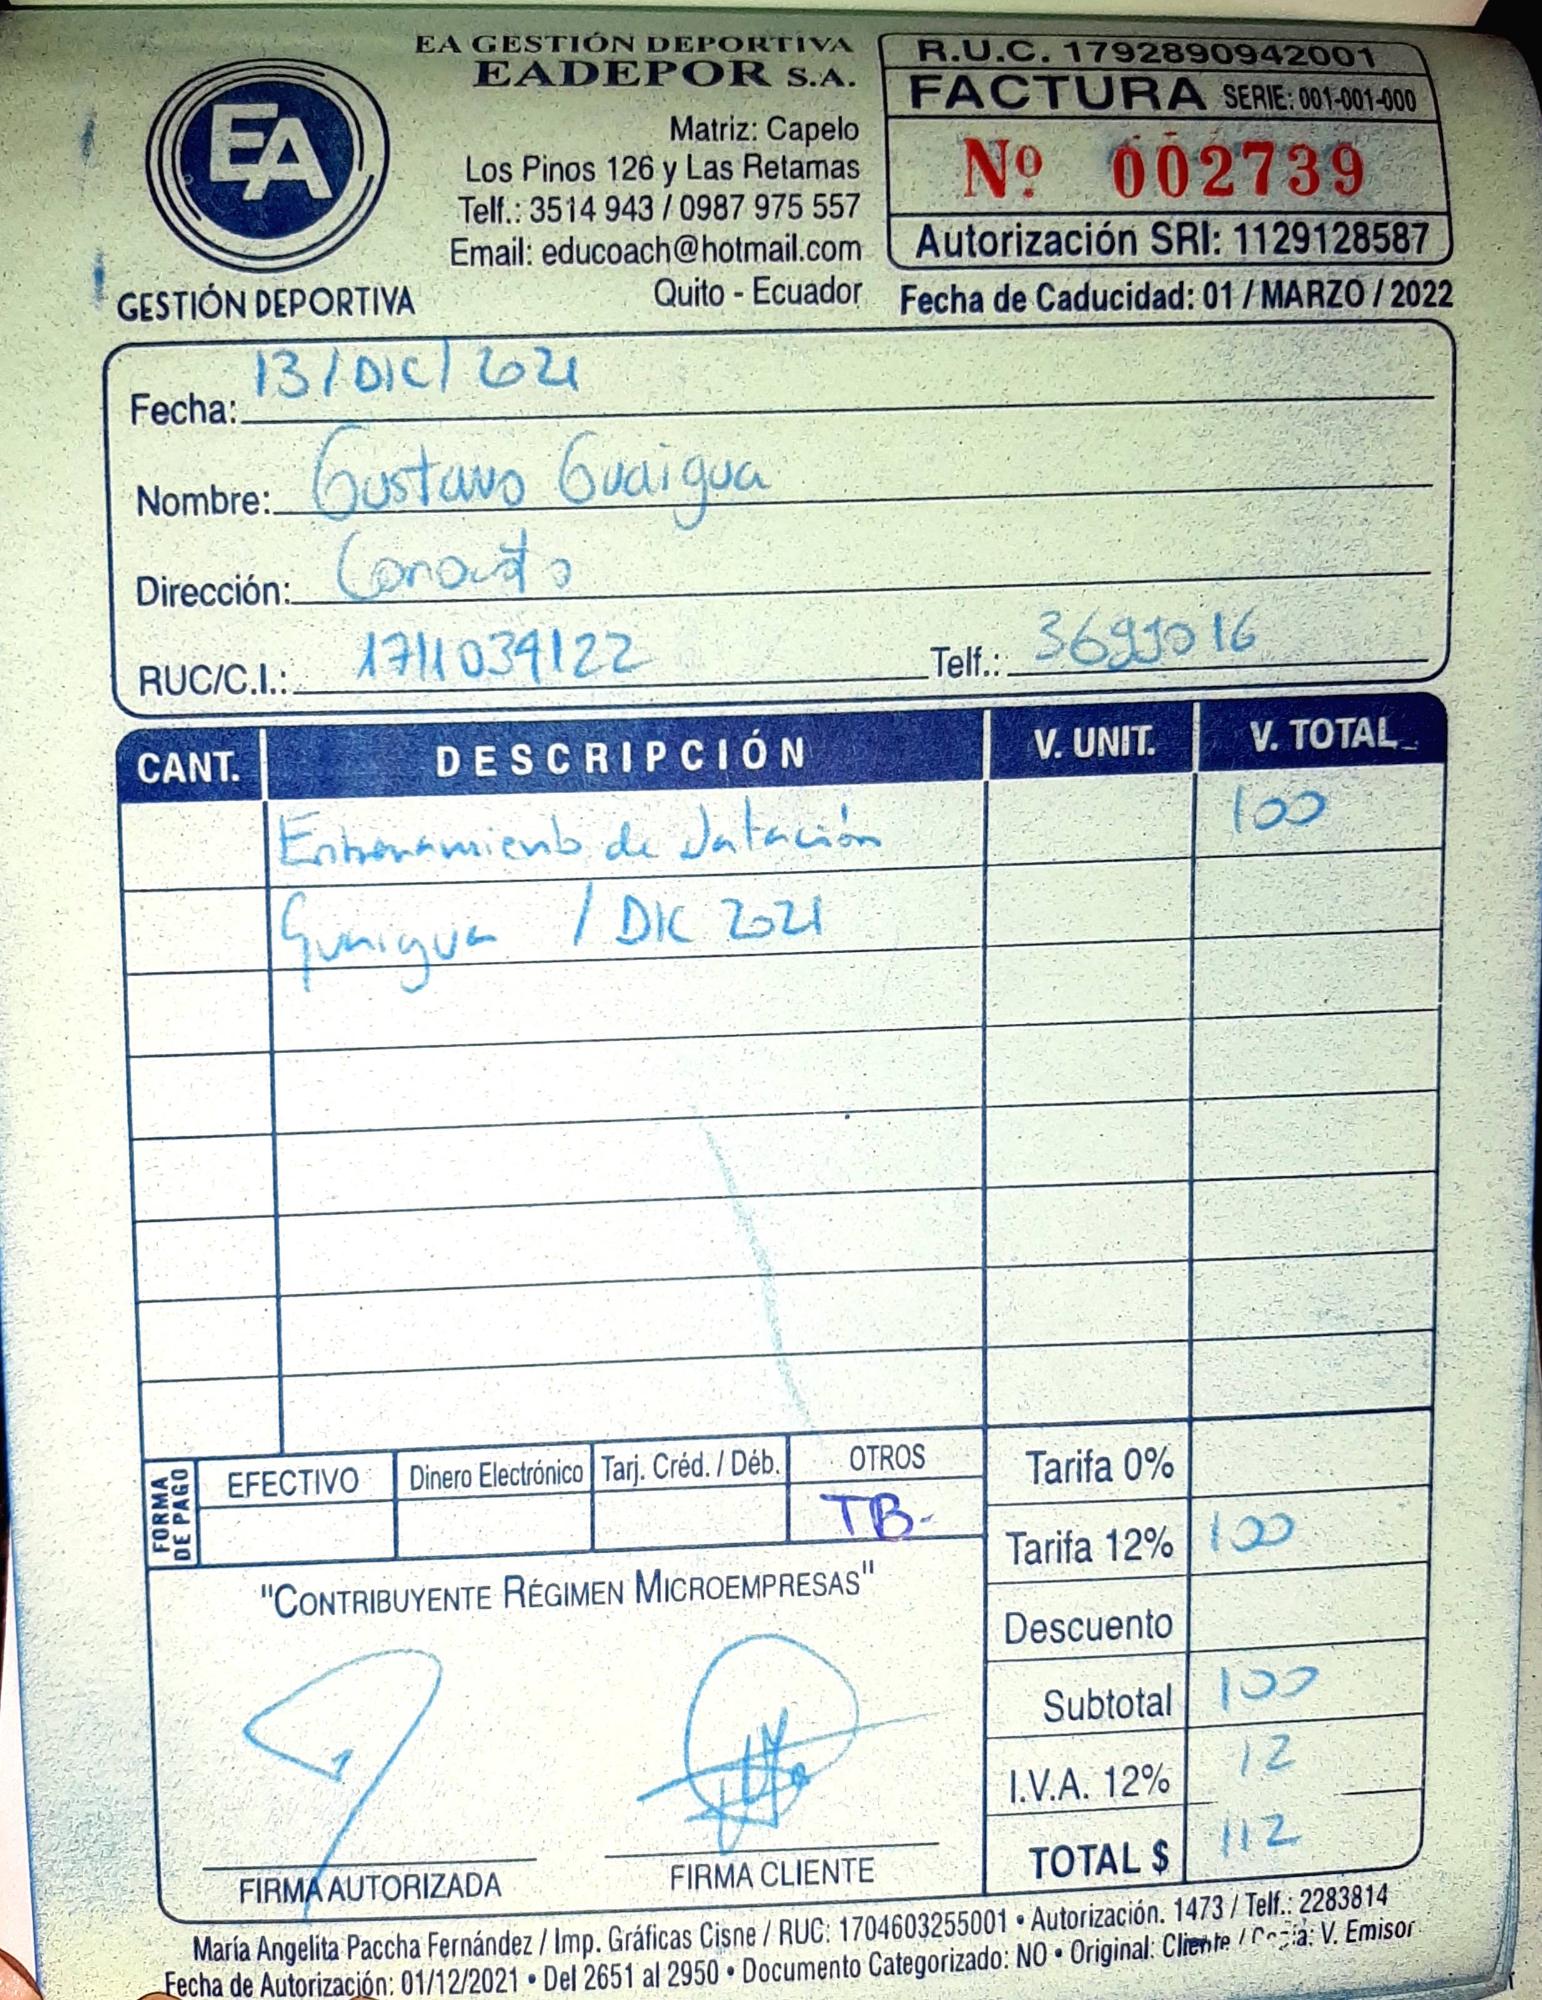 EA GESTIÓN DEPORTIVA
EADEPOR S.A.
EA
GESTIÓN DEPORTIVA
Matriz: Capelo
Los Pinos 126 y Las Retamas
Telf.: 3514 943 / 0987 975 557
Email: educoach@hotmail.com
Quito - Ecuador
R.U.C. 1792890942001
FACTURA SERIE: 001-001-000
Nº 002739
Autorización SRI: 1129128587
Fecha de Caducidad: 01 / MARZO / 2022
Fecha: 13/DIC/2021
Nombre: Gustavo Guaigua
Dirección: Conocoto
RUC/C.I.: 1711034122 Telf.:
CANT. DESCRIPCIÓN V. UNIT. V. TOTAL
Entrenamiento de Natación 100
Guaigua / DIC 2021
FORMA DE PAGO
EFECTIVO Dinero Electrónico Tarj. Créd. / Déb. OTROS
TB-
Tarifa 0%
Tarifa 12% 100
Descuento
Subtotal 100
I.V.A. 12% 12
TOTAL $ 112
"CONTRIBUYENTE RÉGIMEN MICROEMPRESAS"
FIRMA AUTORIZADA FIRMA CLIENTE
María Angelita Paccha Fernández / Imp. Gráficas Cisne / RUC: 1704603255001 • Autorización. 1473 / Telf.: 2283814
Fecha de Autorización: 01/12/2021 • Del 2651 al 2950 • Documento Categorizado: NO • Original: Cliente / Copia: V. Emisor